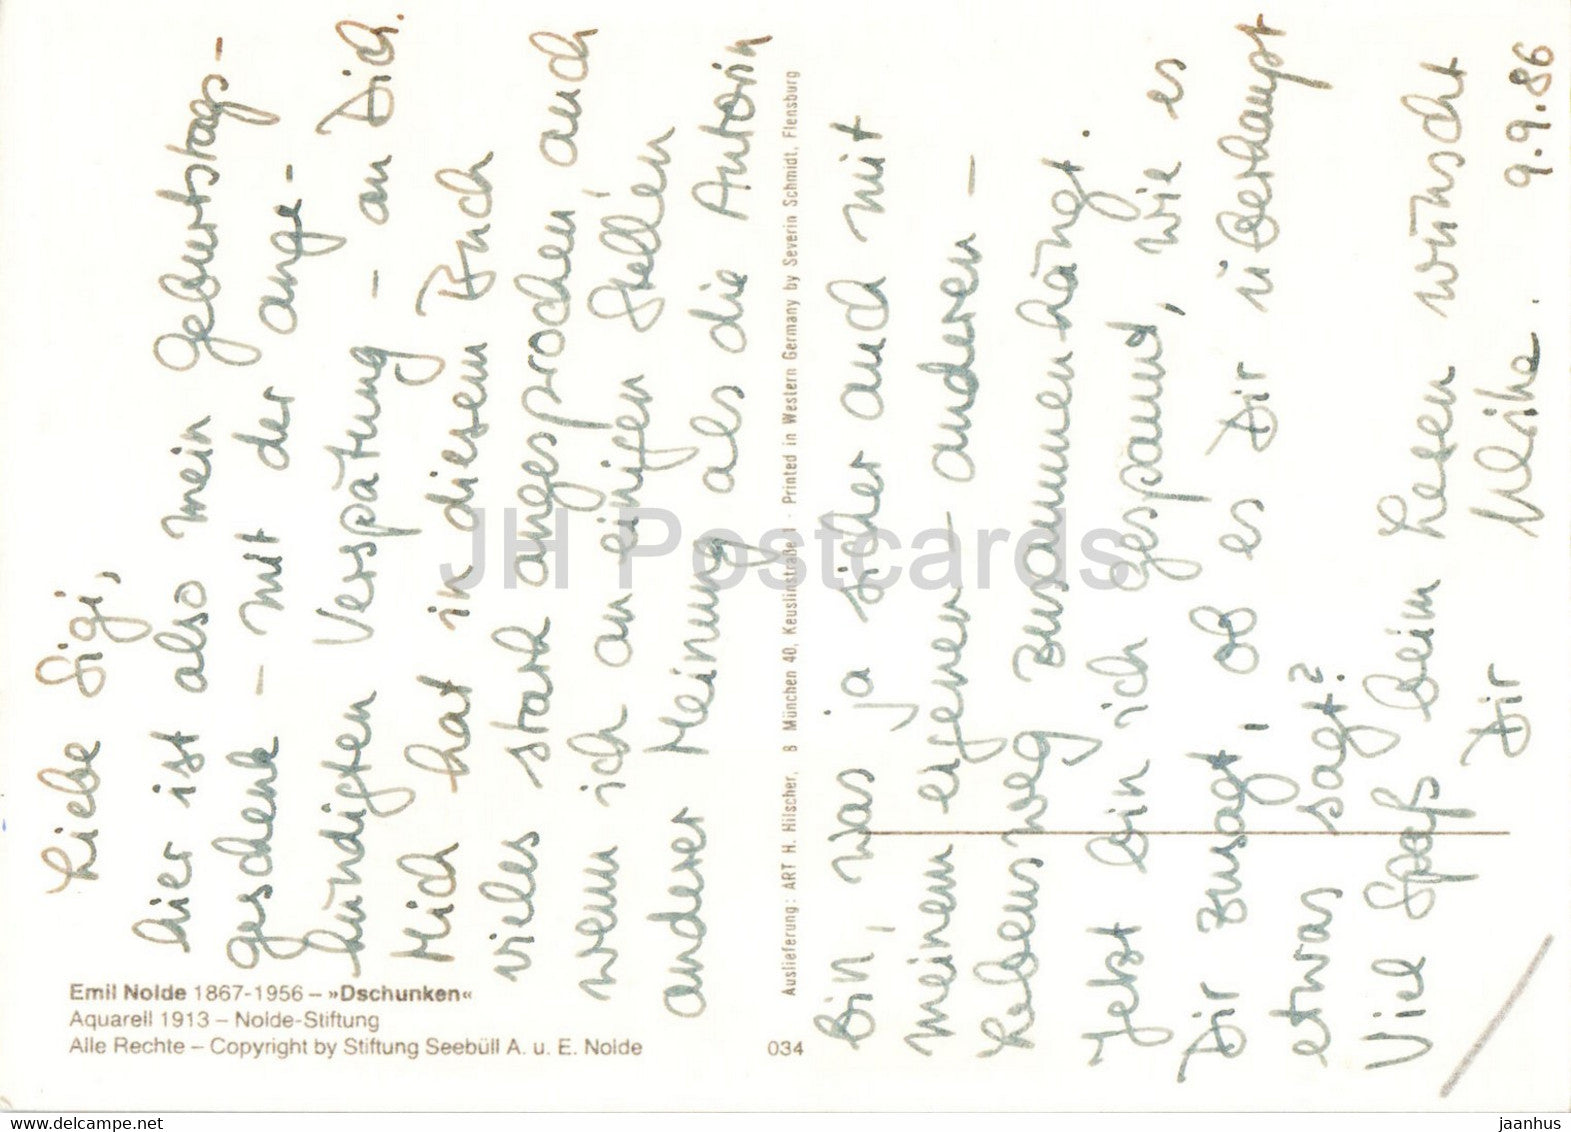 Liebe Sigi,
hier ist also mein Geburtstags-
geschenk - mit der ange-
kündigten Verspätung - an Dich.
Mich hat in diesem Buch
vieles stark angesprochen, auch
wenn ich an einigen Stellen
anderer Meinung als die Autorin
bin, was ja sicher auch mit
meinem eigenen - anderen -
Lebensweg zusammenhängt.
Jetzt bin ich gespannt, wie es
Dir zusagt, ob es Dir überhaupt
etwas sagt?
Viel Spaß beim Lesen wünscht
Dir Ulrike.
9.9.86
Emil Nolde 1867-1956 – »Dschunken«
Aquarell 1913 – Nolde-Stiftung
Alle Rechte – Copyright by Stiftung Seebüll A. u. E. Nolde
034
Auslieferung: ART H. Hilscher, 8 München 40, Keuslinstraße 1 · Printed in Western Germany by Severin Schmidt, Flensburg
JH Postcards
www.delcampe.net
jaanhus